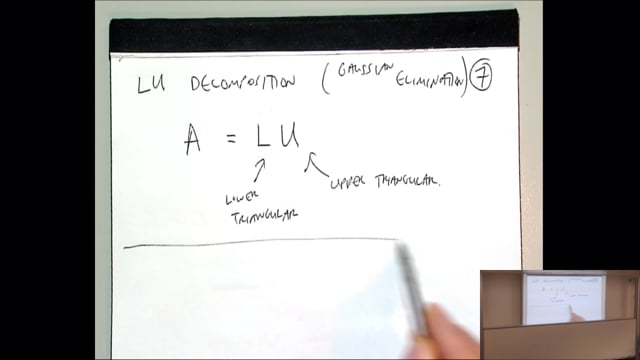 LU DECOMPOSITION (GAUSSIAN ELIMINATION) 7
A = LU
LOWER TRIANGULAR
UPPER TRIANGULAR.